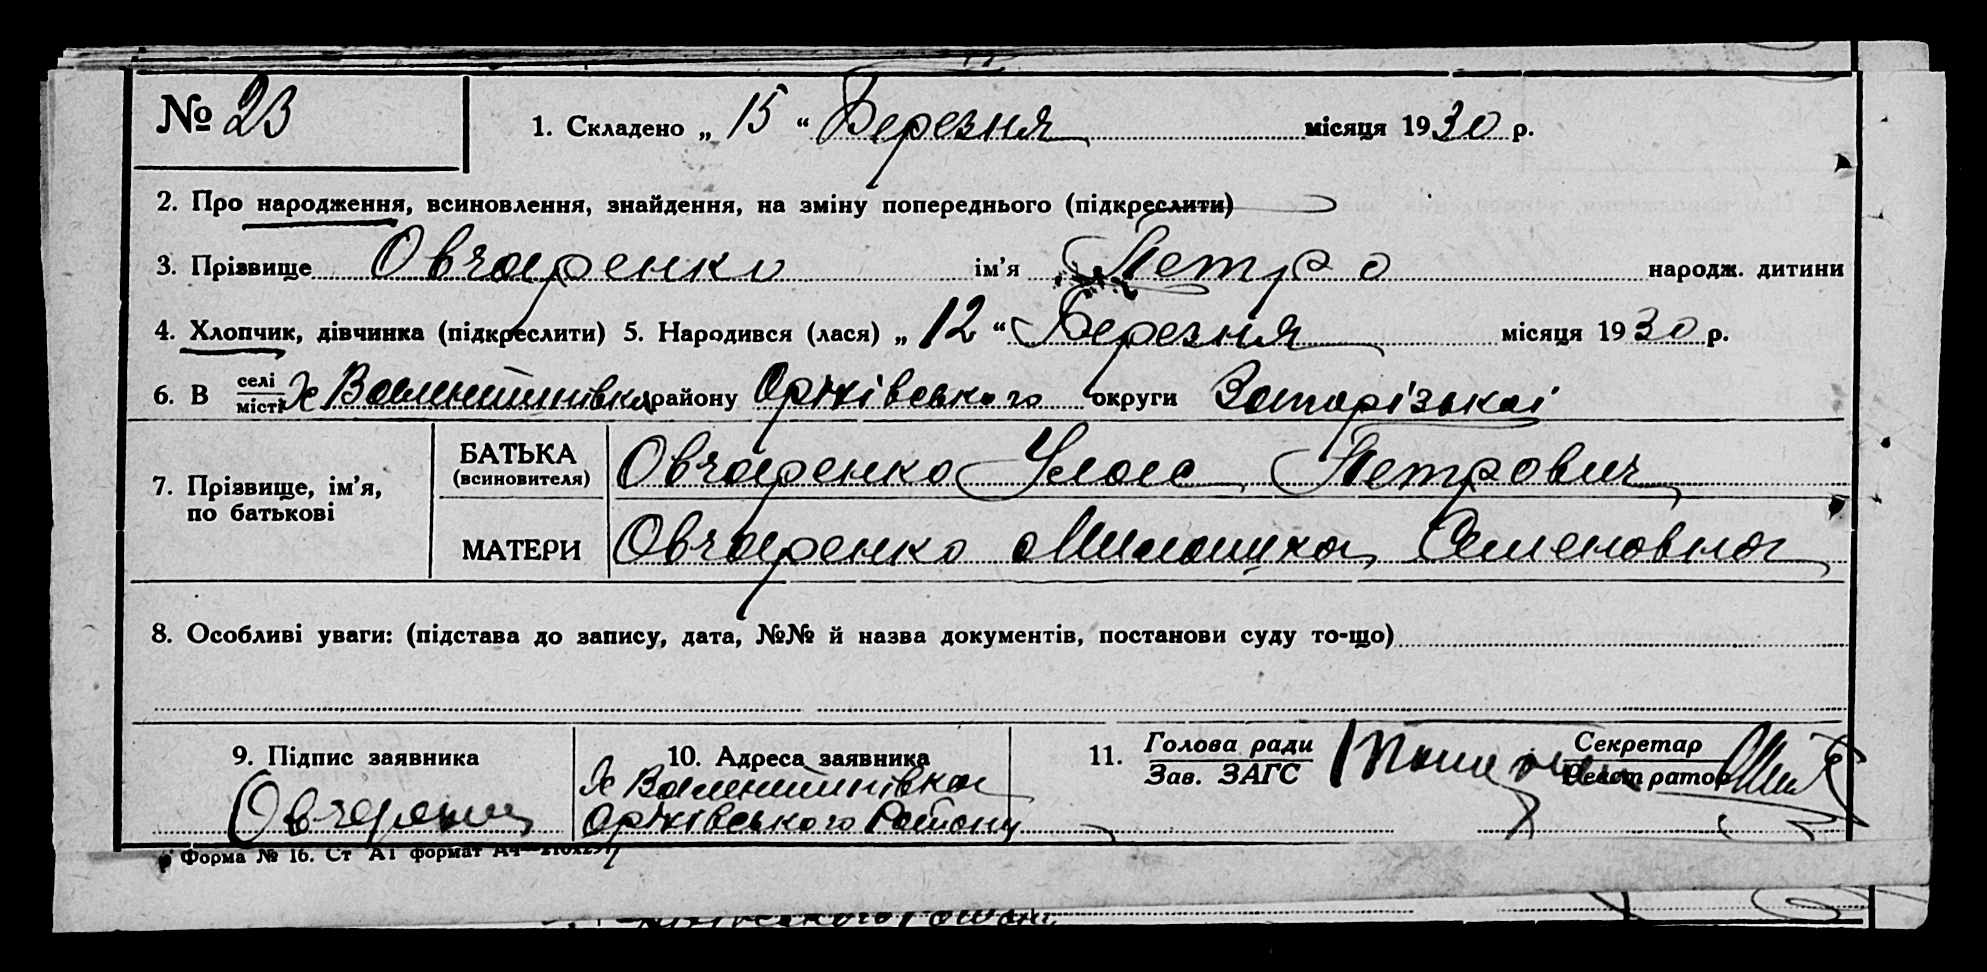 № 23
1. Складено „ 15 “ Березня місяця 1930 р.
2. Про народження, всиновлення, знайдення, на зміну попереднього (підкреслити)
3. Прізвище Овчаренко ім’я Петро народж. дитини
4. Хлопчик, дівчинка (підкреслити) 5. Народився (лася) „ 12 “ Березня місяця 1930 р.
6. В селі місті х Валентинівка району Оріхівського округи Запорізької
7. Прізвище, ім’я, по батькові
БАТЬКА (всиновителя) Овчаренко Улас Петрович
МАТЕРИ Овчаренко Семеновна
8. Особливі уваги: (підстава до запису, дата, №№ й назва документів, постанови суду то-що)
9. Підпис заявника
10. Адреса заявника
11. Голова ради Зав. ЗАГС
Секретар Реєстратор
Овчаренко
х Валентинівка
Оріхівського Району
Форма № 16. Ст А1 формат А4